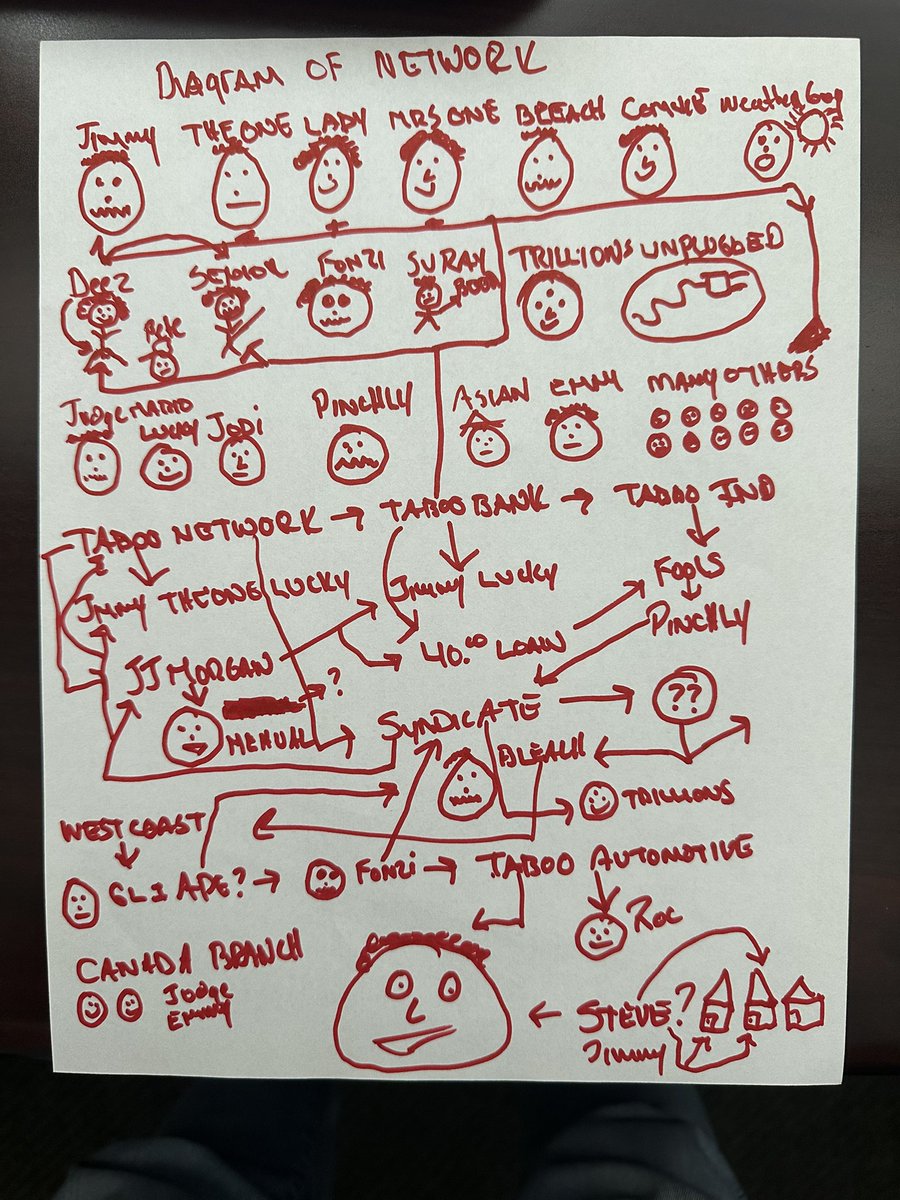 DIAGRAM OF NETWORK
Jimmy THEONE LADY MRS ONE BLEACH
Deez SENIOR FONZI SURAY TRILLIONS UNPLUGGED
Pete BOOM
Judge MARIO LUCKY JODI PINCHLY ASIAN EMMY MANY OTHERS
TABOO NETWORK → TABOO BANK → TABOO IND
Jimmy THEONE LUCKY Jimmy LUCKY FOOLS
PINCHLY
JJ MORGAN 40.00 LOAN
?
MENUAL SYNDICATE ??
BLEACH
TRILLIONS
WESTCOAST
GLI APE? → FONZI → TABOO AUTOMOTIVE
ROC
CANADA BRANCH
Judge
Emmy
STEVE?
Jimmy